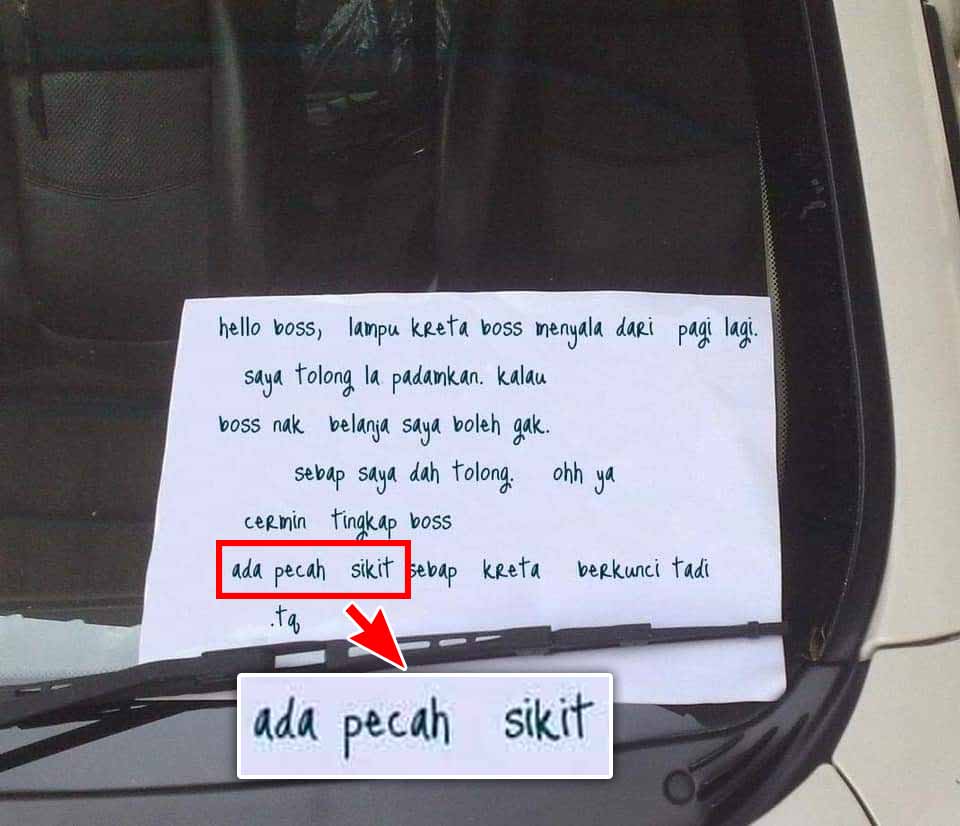 hello boss, lampu kreta boss menyala dari pagi lagi.
saya tolong la padamkan. kalau
boss nak belanja saya boleh gak.
sebap saya dah tolong. ohh ya
cermin tingkap boss
ada pecah sikit sebap kreta berkunci tadi
.tq
ada pecah sikit